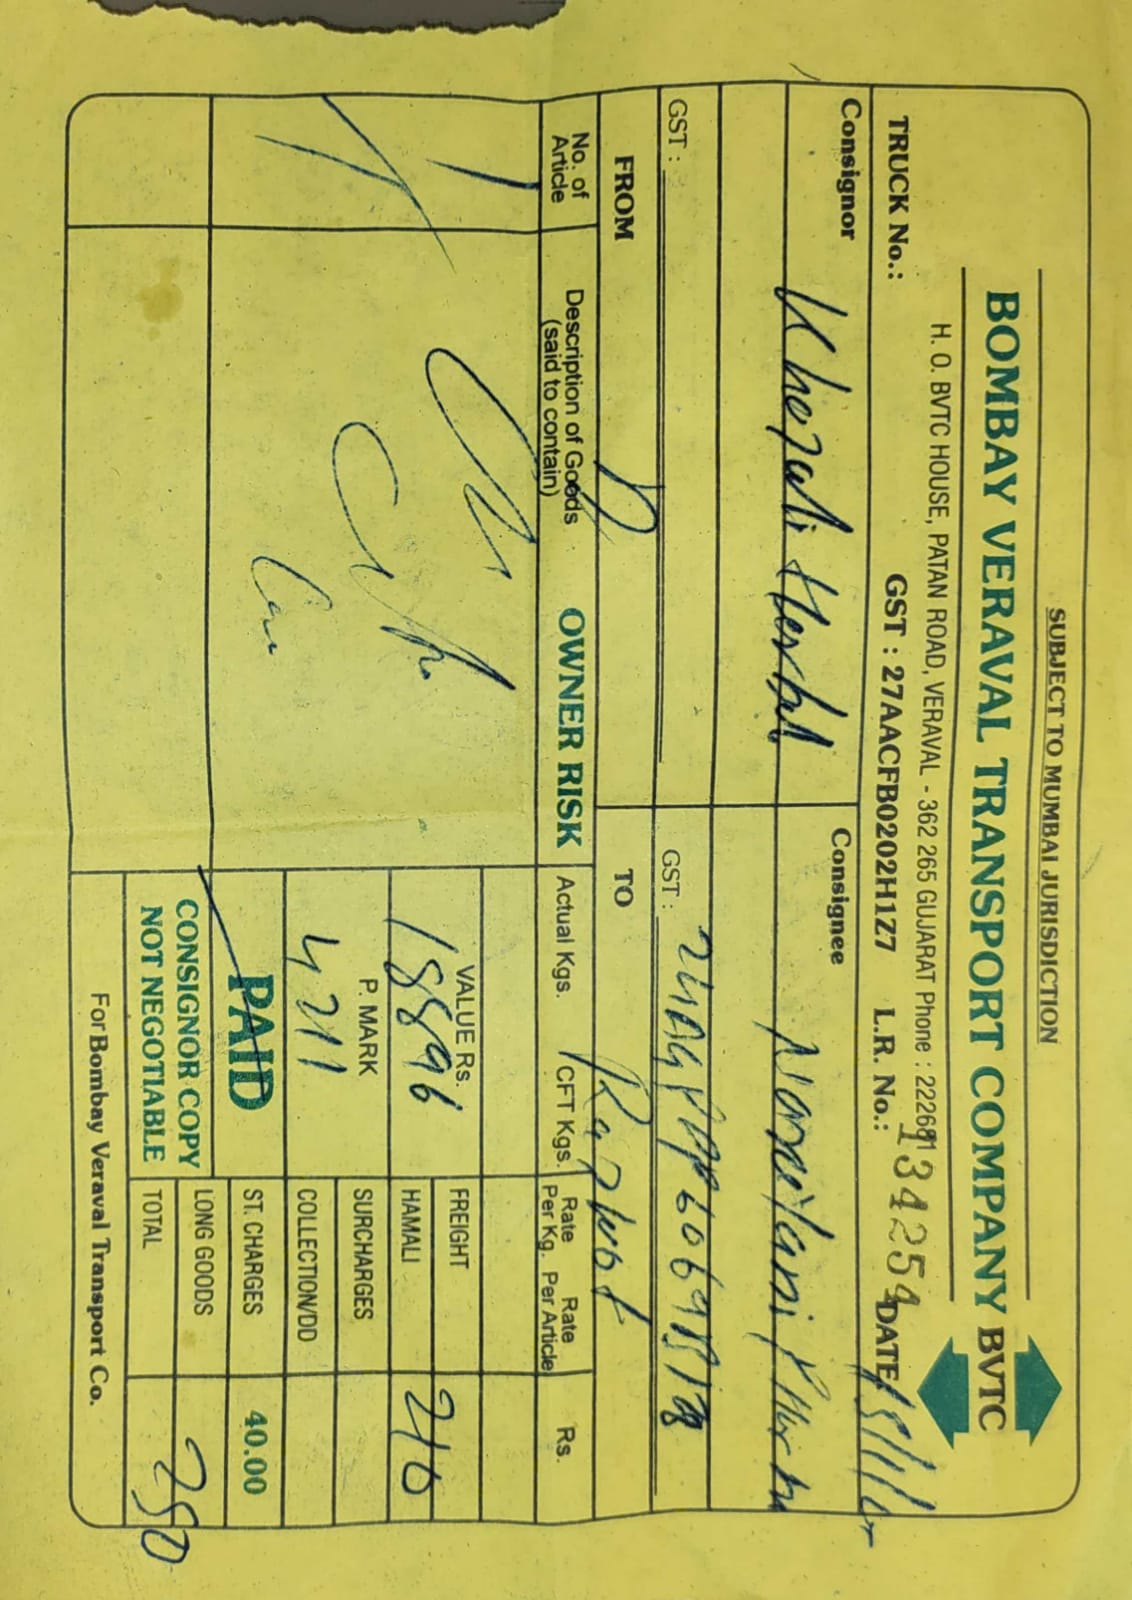 SUBJECT TO MUMBAI JURISDICTION
BOMBAY VERAVAL TRANSPORT COMPANY BVTC
H. O. BVTC HOUSE, PATAN ROAD, VERAVAL - 362 265 GUJARAT Phone : 222681
TRUCK No.: GST : 27AACFB0202H1Z7 L.R. No.: 134254 DATE
Consignor Consignee
Herbal
GST : GST :
FROM TO Rajkot
No. of Article Description of Goods (said to contain) OWNER RISK Actual Kgs. CFT Kgs. Rate Per Kg. Rate Per Article Rs.
VALUE Rs. FREIGHT
18896 HAMALI 240
P. MARK SURCHARGES
4211 COLLECTION/DD
PAID ST. CHARGES 40.00
CONSIGNOR COPY LONG GOODS
NOT NEGOTIABLE TOTAL 280
For Bombay Veraval Transport Co.